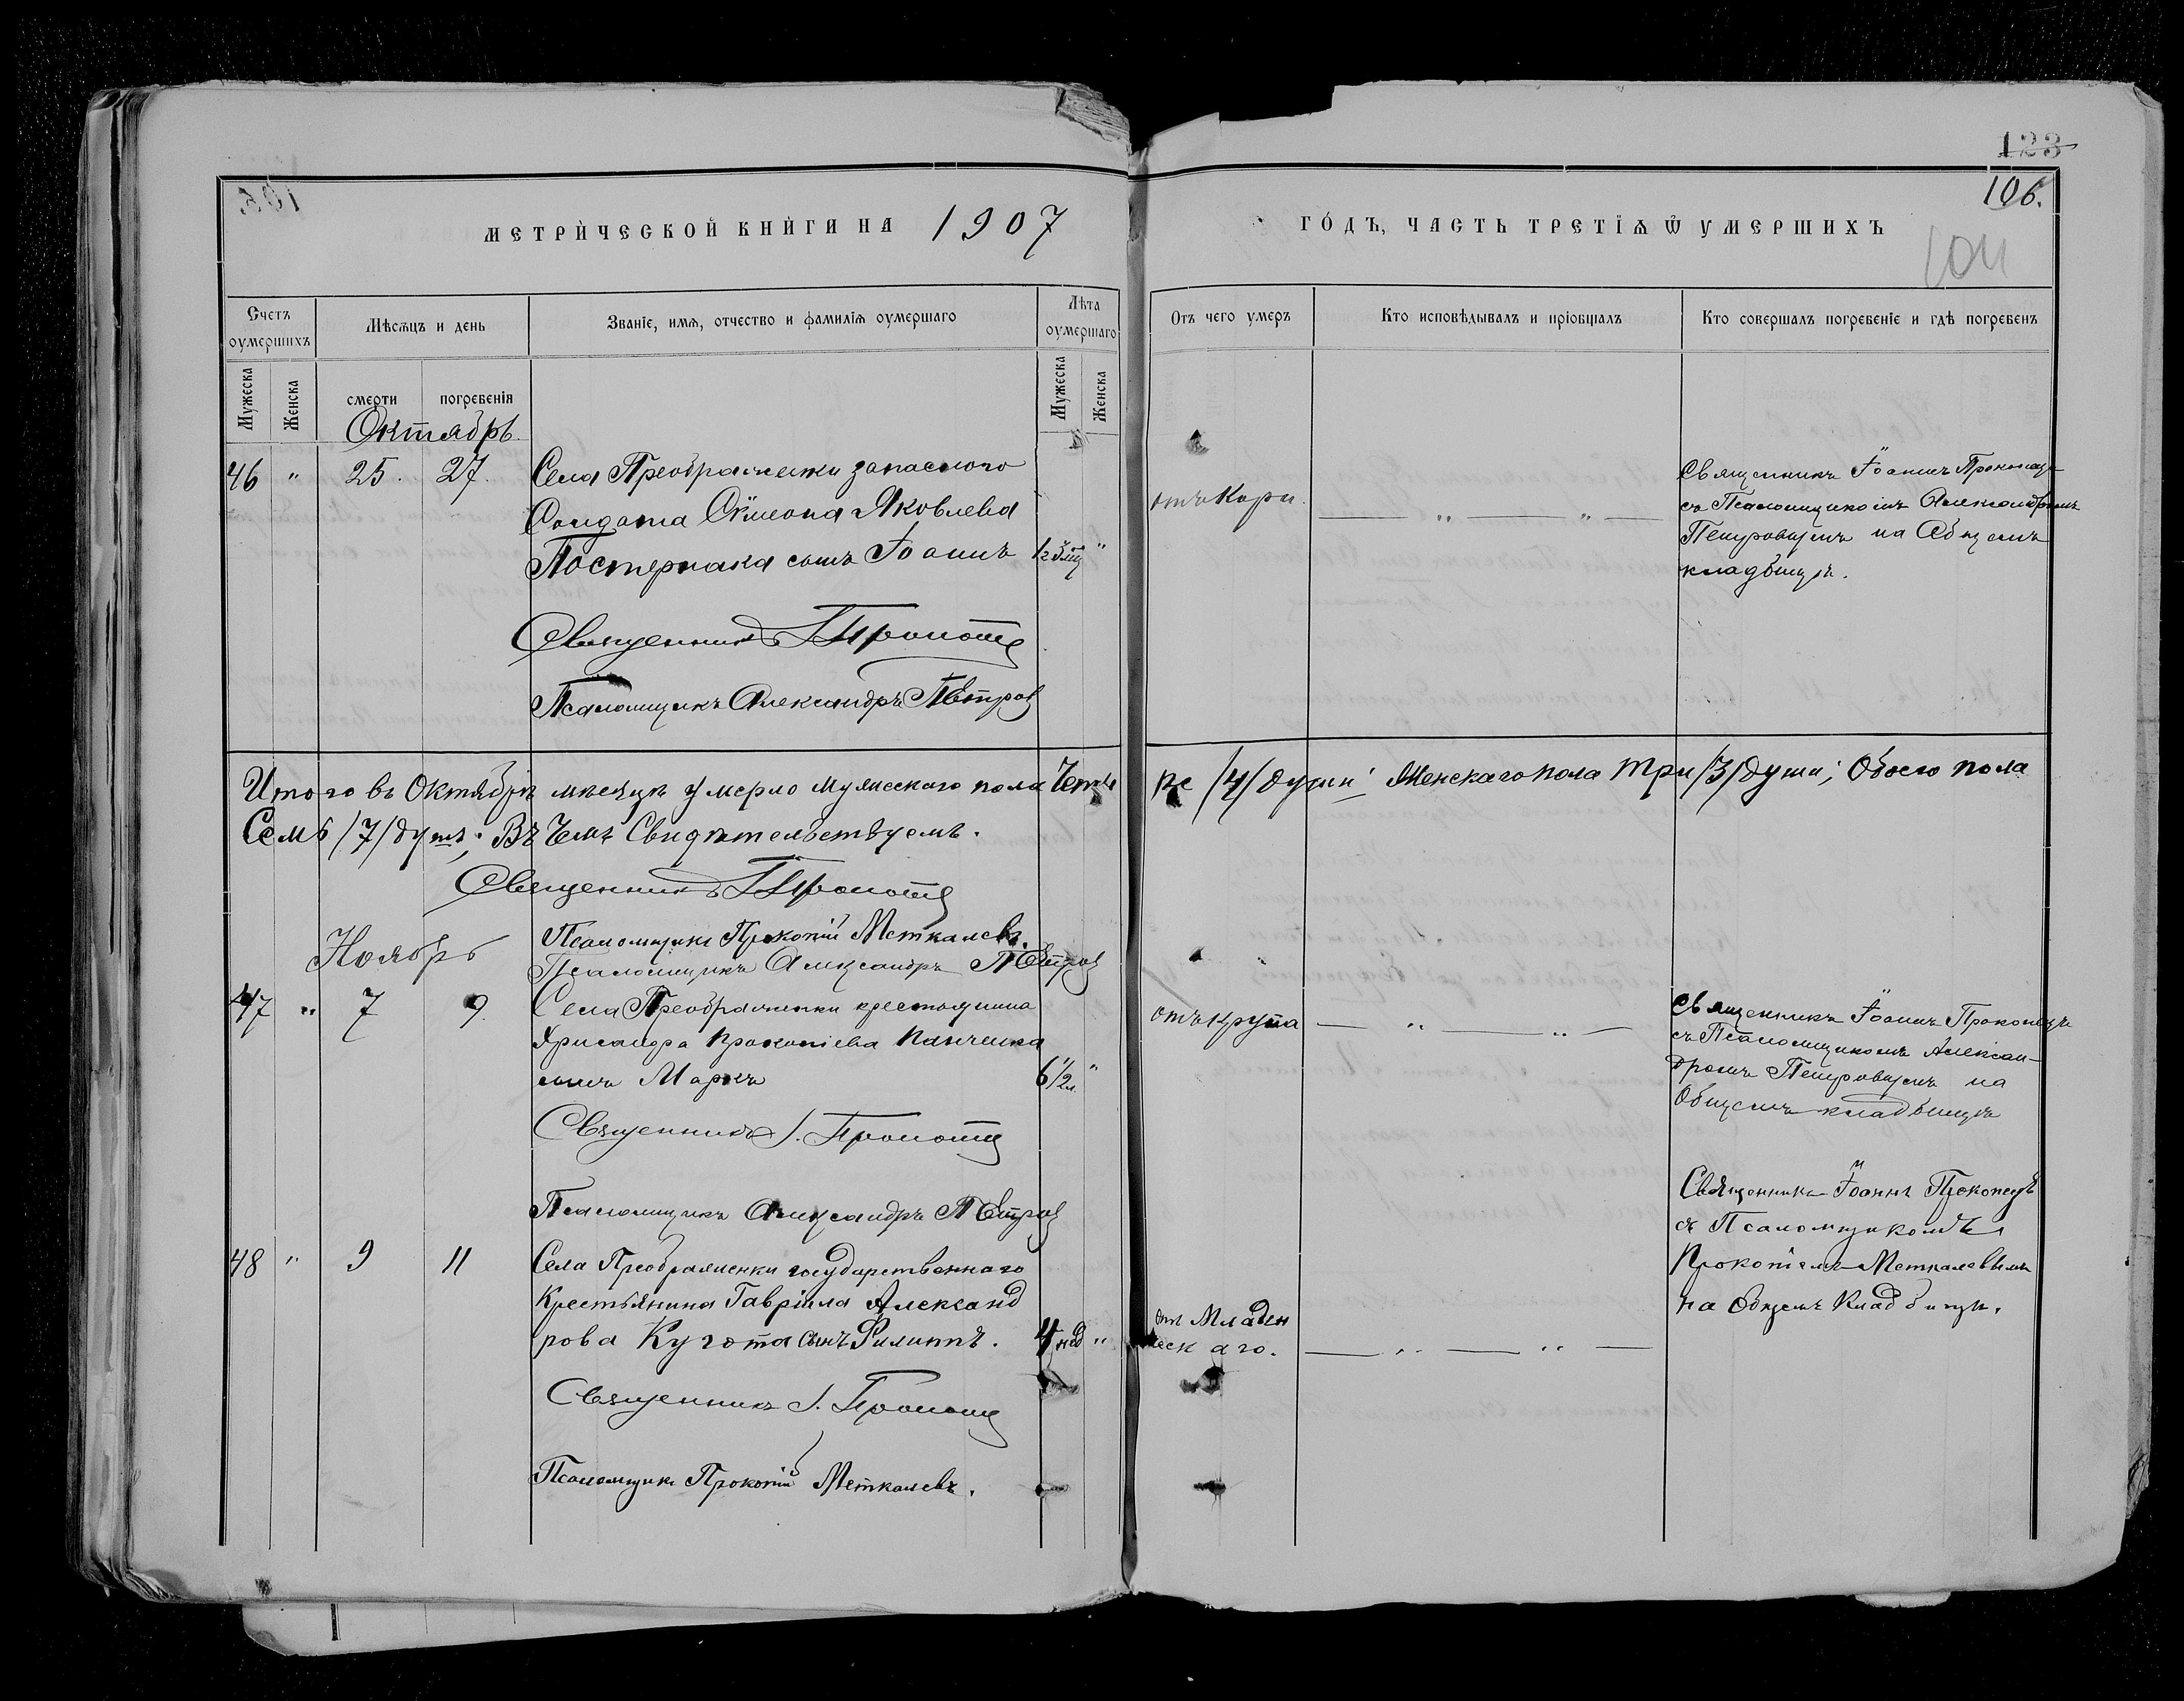 123
106.
104
МЕТРИ́ЧЕСКОЙ КНИ́ГИ НА 1907
ГО́ДЪ, ЧАСТЬ ТРЕТІѦ Ѿ УМЕРШИХЪ
Счетъ оумершихъ
Мѣсѧцъ и день
Званіе, имѧ, отчество и фамилїѧ оумершаго
Лѣта оумершаго
Отъ чего умеръ
Кто исповѣдывалъ и пріобщалъ
Кто совершалъ погребеніе и гдѣ погребенъ
Мужеска
Женска
смерти
погребенія
Мужеска
Женска
Октябрь.
46 " 25. 27. Села Преображенки запасного
Солдата Сѵмеона Яковлева
Постернака сынъ Іоаннъ
отъ Кори.
Священникъ Іоаннъ Прокопецъ
съ Псаломщикомъ Александромъ
Петровичемъ на Общемъ
кладбищѣ.
Священникъ І Прокопец
Псаломщикъ Александръ Петров
Итого въ Октябрѣ мѣсяцѣ умерло мужескаго пола Четы
ре /4/ души; Женскаго пола три /3/ души; Обоего пола
Семь /7/ душъ; Въ Чемъ Свидѣтельствуемъ.
Священникъ І Прокопец
Псаломщикъ Прокопій Меткалевъ.
Псаломщикъ Александръ Петров
Ноябрь
47 " 7 9. Села Преображенки крестьянина
Хрисанфа Прокопіева
сынъ Маркъ 6 1/2 л. "
отъ Крупа
Священникъ Іоаннъ Прокопецъ
съ Псаломщикомъ Алексан-
дромъ Петровичемъ на
Общемъ кладбищѣ
Священникъ І. Прокопец
Псаломщикъ Александръ Петров
48 " 9 11 Села Преображенки государственнаго
Крестьянина Гавріила Александ
рова Кугота сынъ Филиппъ. 4 нед "
отъ Младен
ческаго.
Священникъ Іоаннъ Прокопецъ
съ Псаломщикомъ
Прокопіемъ Меткалевымъ
на Общемъ Кладбищѣ.
Священникъ І. Прокопец
Псаломщикъ Прокопій Меткалевъ.